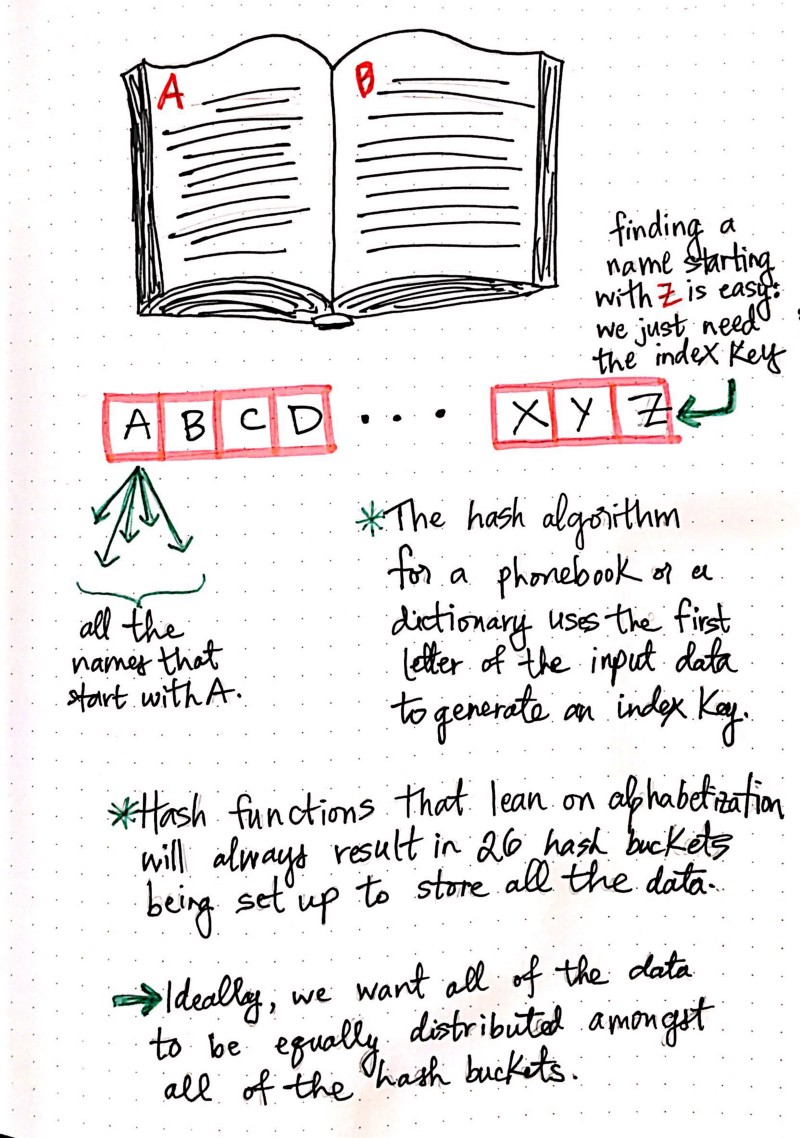 A
B
finding a
name starting
with Z is easy:
we just need
the index key
A B C D .... X Y Z
all the
names that
start with A.
*The hash algorithm
for a phonebook or a
dictionary uses the first
letter of the input data
to generate an index key.
*Hash functions that lean on alphabetization
will always result in 26 hash buckets
being set up to store all the data.
→Ideally, we want all of the data
to be equally distributed amongst
all of the hash buckets.